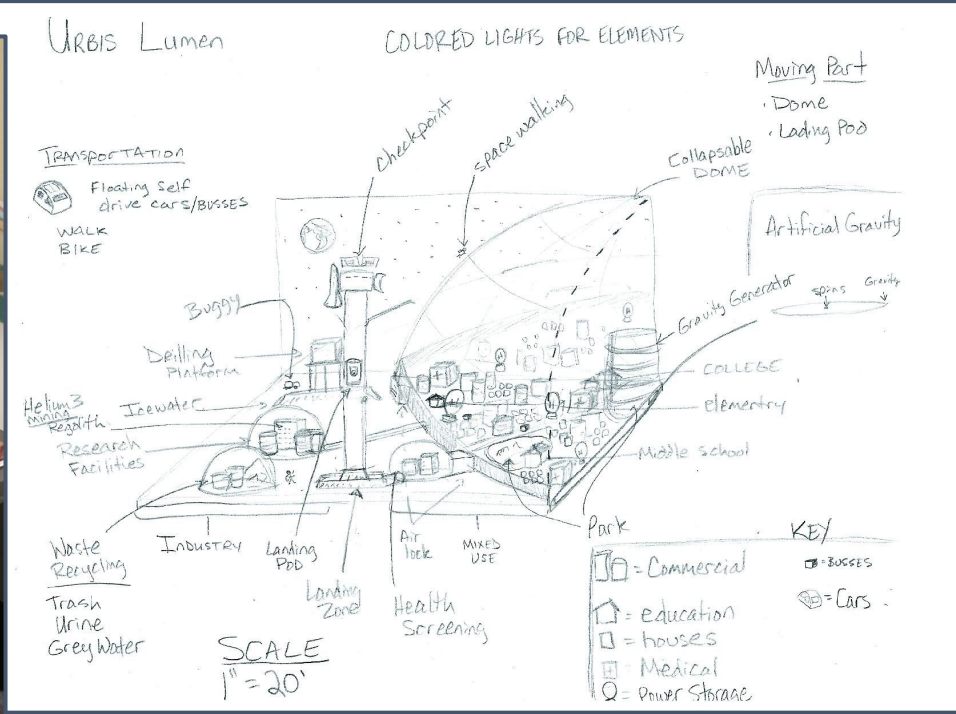 URBIS LUMEN
COLORED LIGHTS FOR ELEMENTS
Moving Part
· Dome
· Lading Pod
TRANSPORTATION
Floating Self
drive cars/BUSSES
WALK
BIKE
checkpoint
space walking
Collapsable
DOME
Artificial Gravity
spins
Gravity
Gravity Generator
COLLEGE
Elementry
Middle school
Buggy
Drilling
Platform
Helium3
mining
Regolith
Icewater
Research
Facilities
Waste
Recycling
Trash
Urine
Grey Water
INDUSTRY
Landing
POD
Landing
Zone
Air
lock
Health
Screening
MIXED
USE
Park
SCALE
1" = 20'
KEY
= BUSSES
= Cars
= Commercial
= education
= houses
= Medical
= Power Storage